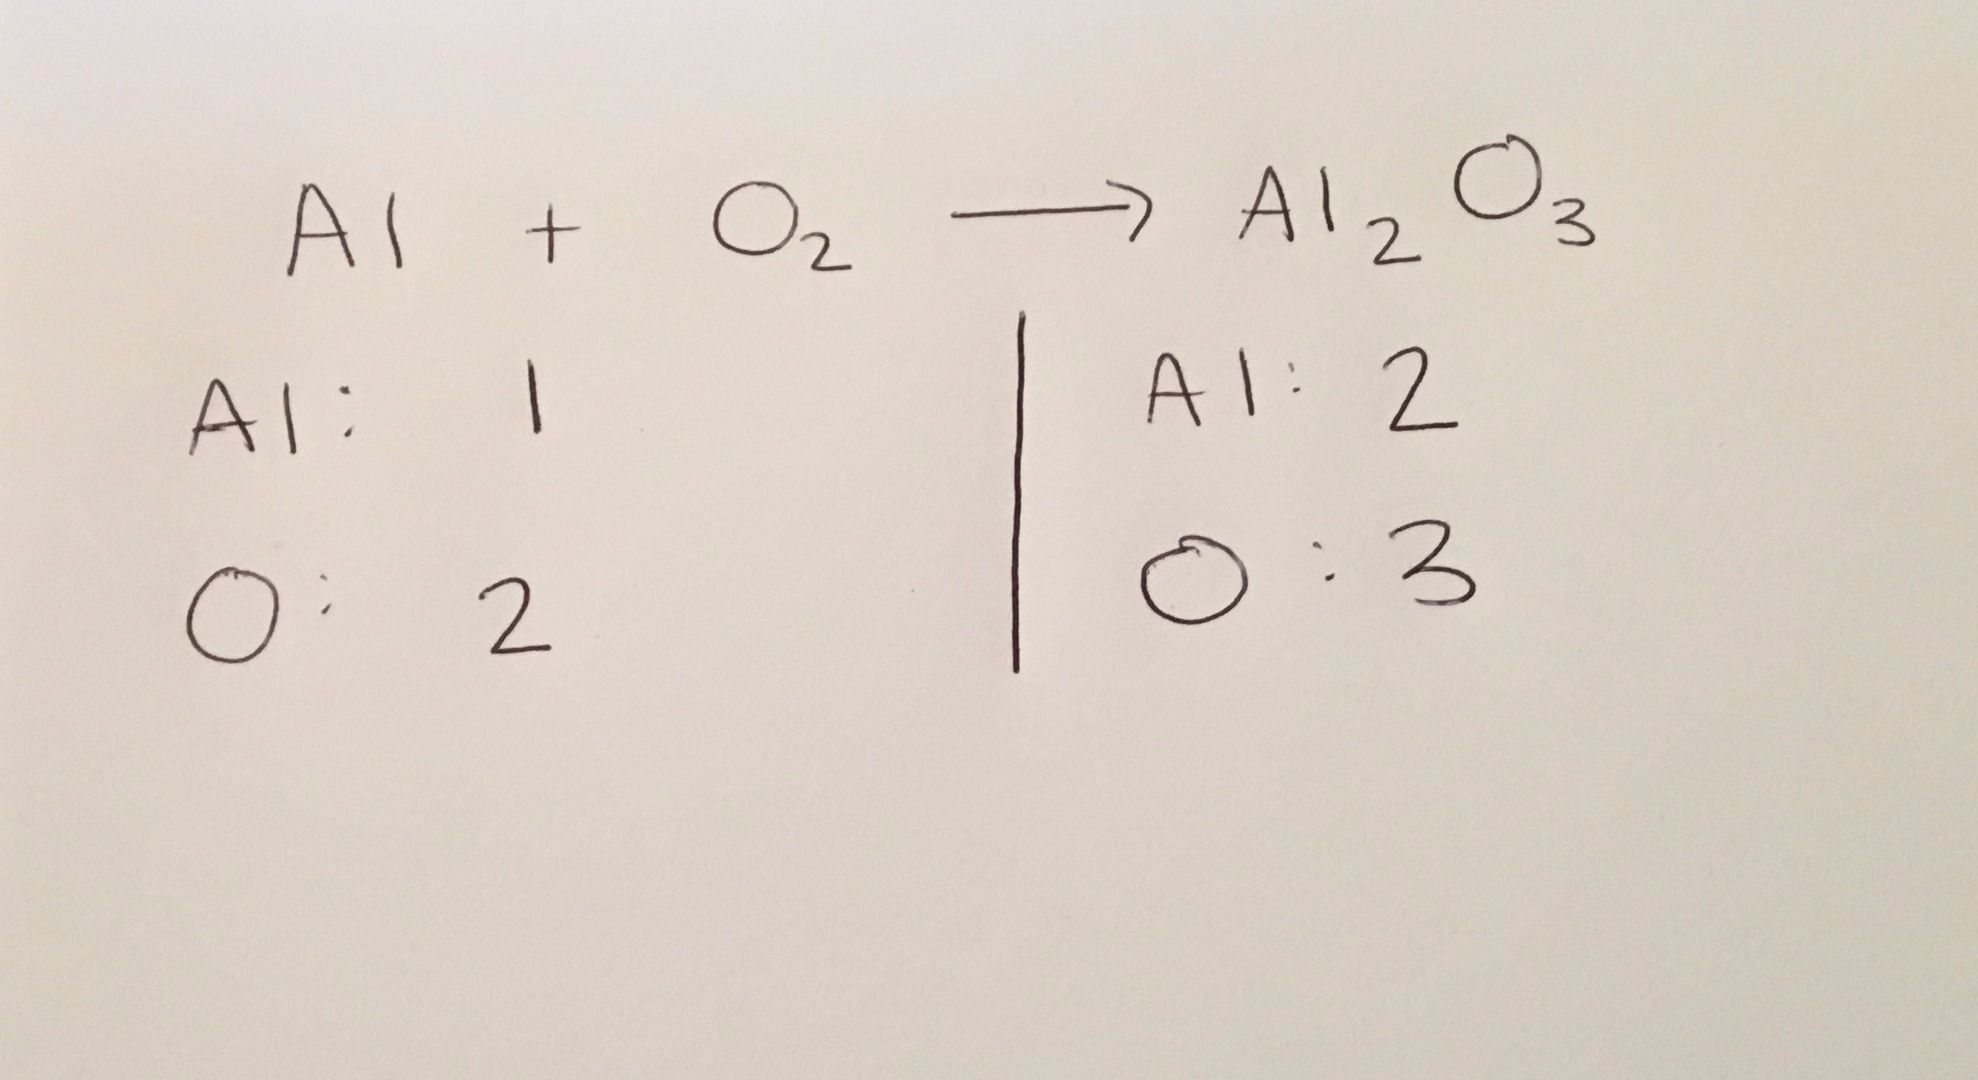 Al + O₂ → Al₂O₃
Al: 1 | Al: 2
O: 2 | O: 3